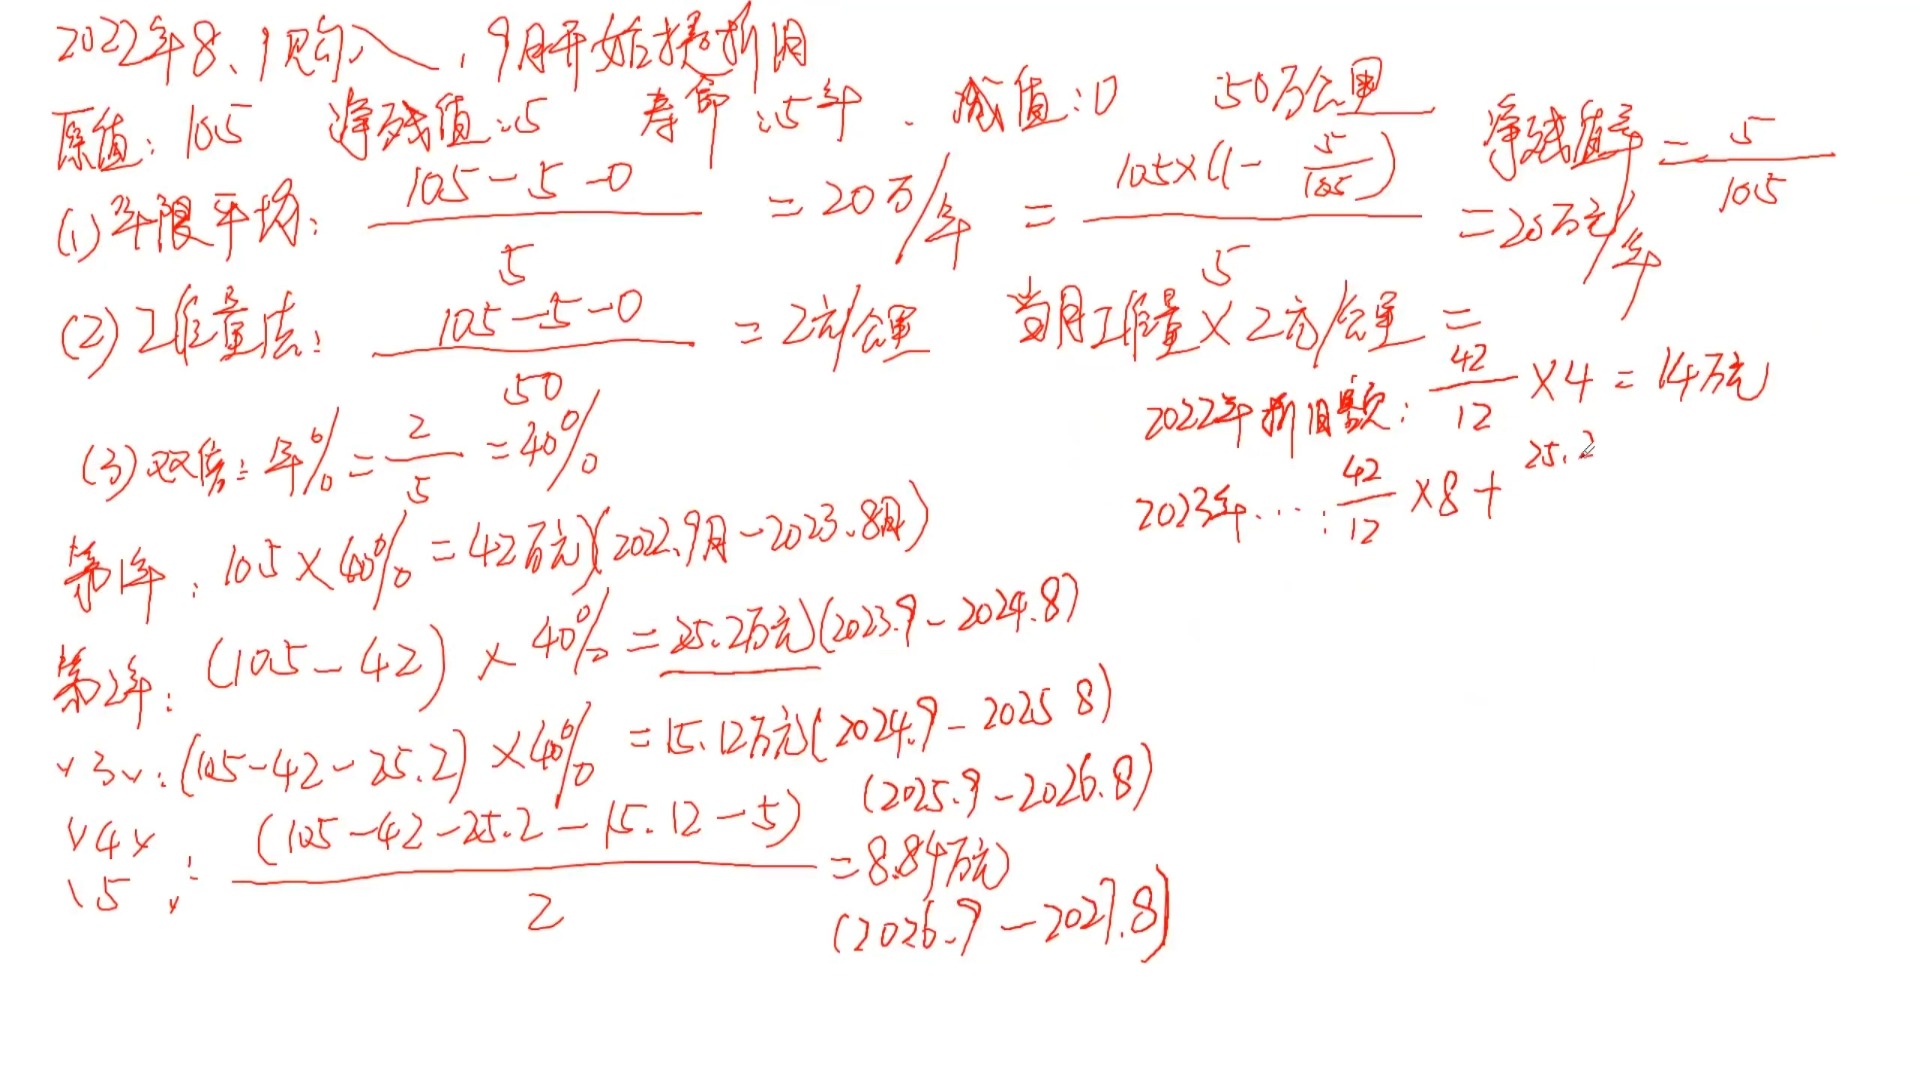 2022年8、1购入，9月开始提折旧
原值：105 净残值：5 寿命：5年、减值：0 50万公里
净残值率 = 5/105
(1)年限平均：(105-5-0)/5 = 20万/年 = 105×(1-5/105)/5 = 20万元/年
(2)工作量法：(105-5-0)/50 = 2元/公里 当月工作量×2元/公里 =
(3)双倍：年% = 2/5 = 40%
2022年折旧额：42/12 ×4 = 14万元
2023年…：42/12 ×8 + 25.2
第1年：105×40% = 42万元(2022.9月-2023.8月)
第2年：(105-42)×40% = 25.2万元(2023.9-2024.8)
〃3〃：(105-42-25.2)×40% = 15.12万元(2024.9-2025 8)
〃4〃
〃5〃：(105-42-25.2-15.12-5)/2 = 8.84万元
(2025.9-2026.8)
(2026.9-2027.8)